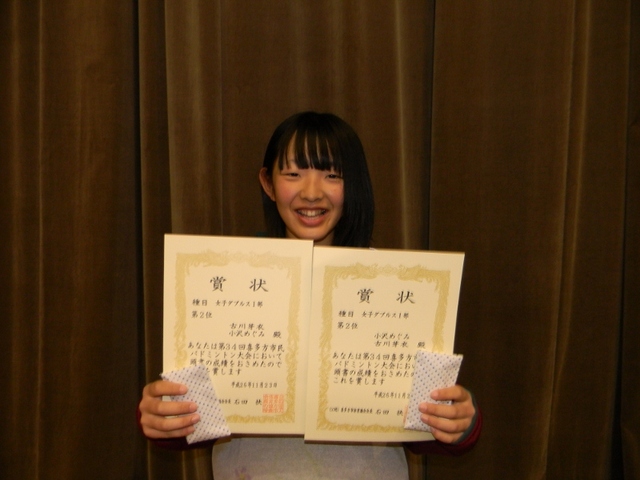 賞状
種目 女子ダブルス1部
第2位
古川芽衣
小沢めぐみ 殿
あなたは第34回喜多方市民
バドミントン大会において
頭書の成績をおさめたので
賞します
平成26年11月23日
石田
賞状
種目 女子ダブルス1部
第2位
小沢めぐみ
古川芽衣 殿
あなたは第34回喜多方市
バドミントン大会にお
頭書の成績をおさめた
これを賞します
平成26年11月
石田